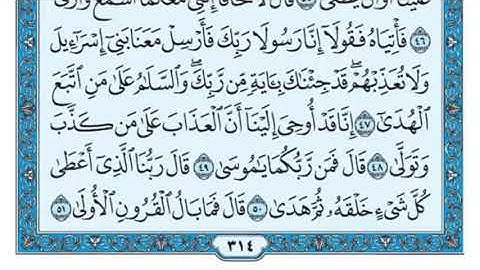 عَلَيْنَا أَوْ أَن يَطْغَىٰ ۝ قَالَ لَا تَخَافَا إِنَّنِي مَعَكُمَا أَسْمَعُ وَأَرَىٰ
۝٤٦ فَأْتِيَاهُ فَقُولَا إِنَّا رَسُولَا رَبِّكَ فَأَرْسِلْ مَعَنَا بَنِي إِسْرَٰٓءِيلَ
وَلَا تُعَذِّبْهُمْ ۖ قَدْ جِئْنَٰكَ بِـَٔايَةٍ مِّن رَّبِّكَ ۖ وَالسَّلَٰمُ عَلَىٰ مَنِ اتَّبَعَ
الْهُدَىٰٓ ۝٤٧ إِنَّا قَدْ أُوحِيَ إِلَيْنَآ أَنَّ الْعَذَابَ عَلَىٰ مَن كَذَّبَ
وَتَوَلَّىٰ ۝٤٨ قَالَ فَمَن رَّبُّكُمَا يَٰمُوسَىٰ ۝٤٩ قَالَ رَبُّنَا الَّذِيٓ أَعْطَىٰ
كُلَّ شَيْءٍ خَلْقَهُۥ ثُمَّ هَدَىٰ ۝٥٠ قَالَ فَمَا بَالُ الْقُرُونِ الْأُولَىٰ ۝٥١
٣١٤